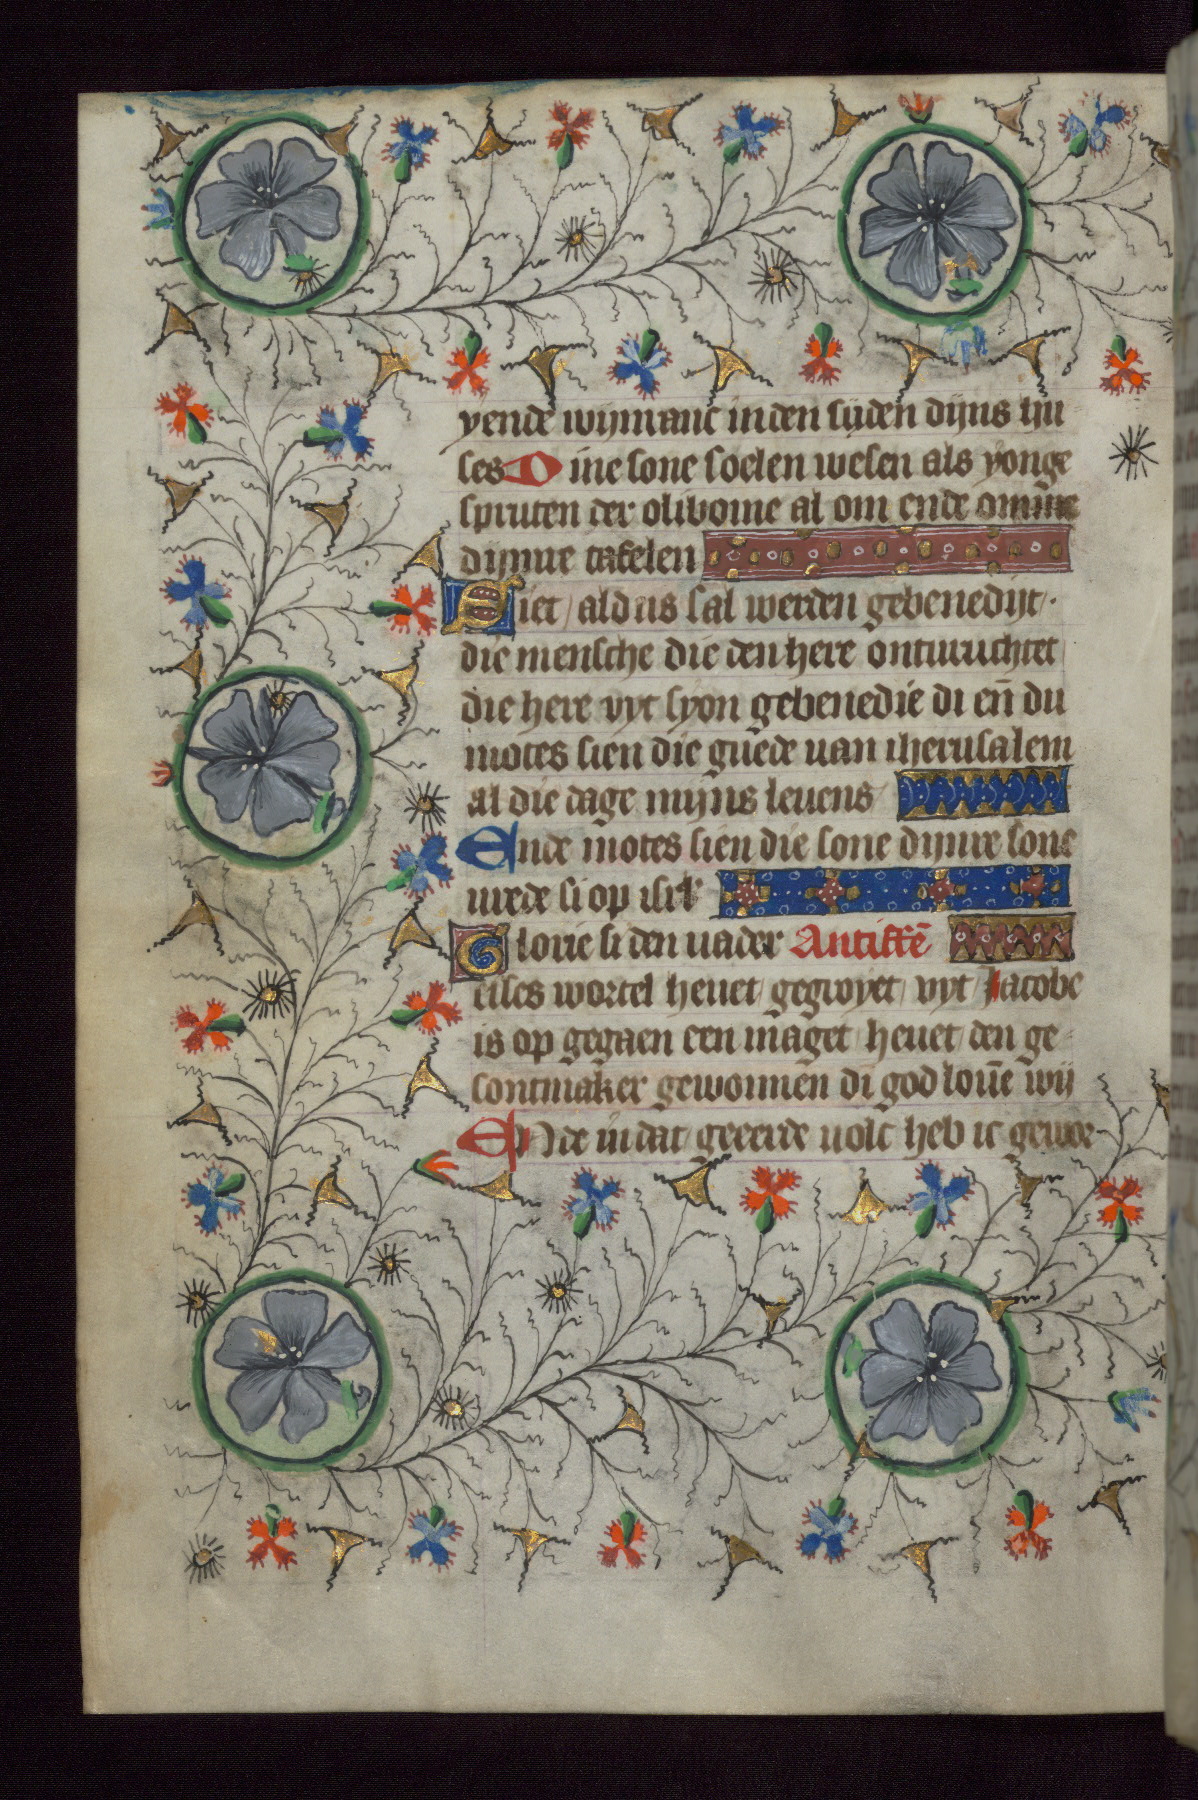 yende wijmanc inden sijden dijns hu
ses Dine sone soelen wesen als yonge
spruten der olibome al om ende omme
dijnre tafelen
Siet aldus sal werden gebenedijt
die mensche die den here ontwuchtet
die here vyt syon gebenedie di en̄ du
motes sien die guede uan iherusalem
al die dage mijns leuens
Ende motes sien die sone dijnre sone
urede si op isrl
Glorie si den uader Antiffē
eises wortel heuet gegroyet vyt Jacobe
is op gegaen een maget heuet den ge
sontmaker gewonnen di god louē wij
Ende in dat geeerde uolc heb ic gewor